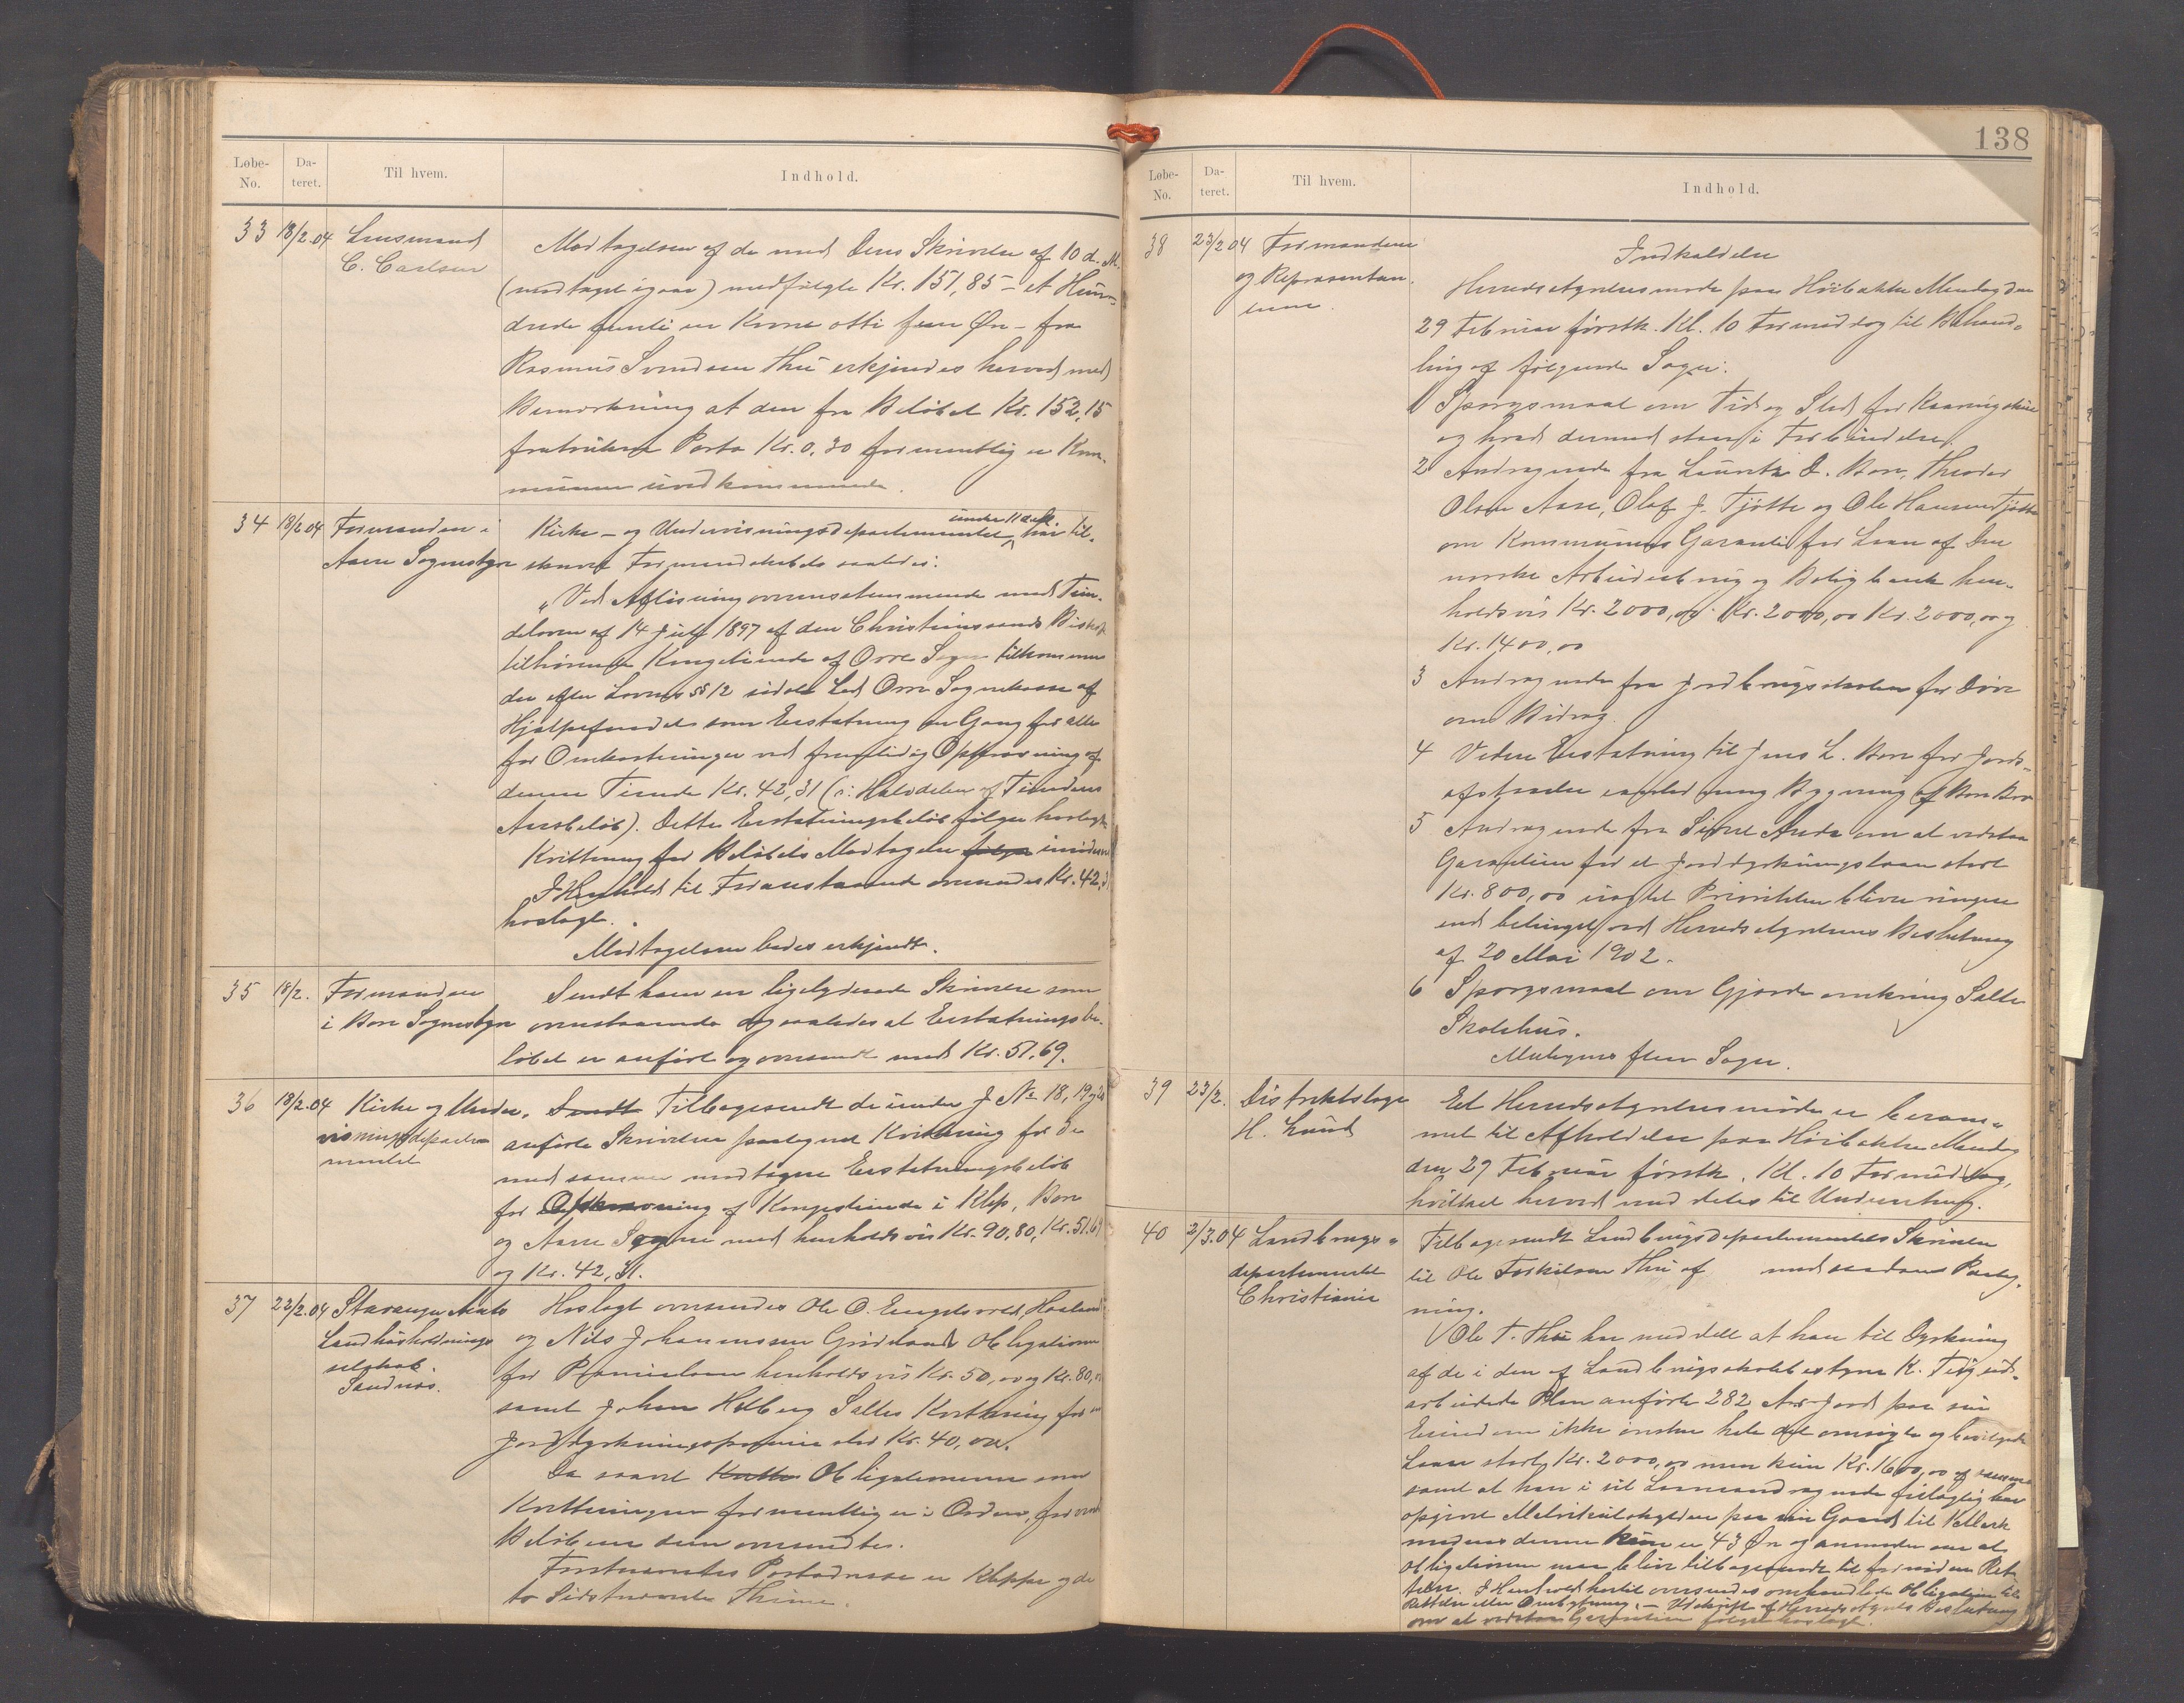 Løbe-No. Da-teret. Til hvem. Indhold.
33 18/2.04 Lensmand C. Carlsen
Modtagelsen af de med Deres Skrivelse af 10 d. M.
(modtaget igaar) medfølgte Kr. 151,85 – et Hun-
drede femti en Krone otti fem Øre – fra
Rasmus Svendsen Thu erkjendes herved med
Bemærkning at den fra Beløbet Kr. 152,15
fratrukne Porto Kr. 0,30 formentlig er Kom-
munen uvedkommende.
34 18/2 04 Formanden i Aarre Sognestyre
Kirke- og Undervisningsdepartementet under har til-
skrevet Formandskabet saaledes:
"Ved Afløsning overensstemmende med Tien-
deloven af 14 Juli 1897 af den Christianssands Bispestol
tilhørende Kongetiende af Orre Sogn tilkommer
der efter Lovens §§ 12 sidste Led Orre Sognekasse af
Hjælpefondet som Erstatning en Gang for alle
for Omkostninger ved fremtidig Opkrævning af
denne Tiende Kr. 42,31 (ɔ: Halvdelen af Tiendens
Aarsbeløb). Dette Erstatningsbeløb følger hoslagt
Kvittering for Beløbets Modtagelse følger imødesees
I Henhold til Foranstaaende oversendes Kr. 42,31
hoslagt.
Modtagelsen bedes erkjendt.
35 18/2. Formanden i Bore Sognestyre
Sendt ham en ligelydende Skrivelse som
ovenstaaende dog saaledes at Erstatningsbe-
løbet er anført og oversendt med Kr. 51,69.
36 18/2.04 Kirke og Under-visningsdeparte-mentet
Sendt Tilbagesendt de under J No 18, 19 og 20
anførte Skrivelser paategnet Kvittering for de
med samme modtagne Erstatningsbeløb
for Opkrævning af Kongetiende i Klep, Bore
og Aarre Sogne med henholdsvis Kr. 90,80, Kr. 51,69
og Kr. 42,31.
37 22/2.04 Stavanger Amts Landhusholdnings selskab. Sandnæs.
Hoslagt oversendes Ole O. Engelsvold, Haaland
og Nils Johannessen Grødeland Obligationer
for Præmielaan henholdsvis Kr. 50,00 og Kr. 80,00
samt Johan Helberg Saltes Kvittering for en
Jorddyrkningspræmie stor Kr. 40,00.
Da saavel Kvitte Obligationerne som
Kvitteringen formentlig er i Orden, forventes
Beløbene dem oversendtes.
Førstnævntes Postadresse er Kleppe og de
to Sidstnævnte Thime.
138
Løbe-No. Da-teret. Til hvem. Indhold.
38 23/2 04 Formændene og Repræsentan-terne.
Indkaldelse
Herredsstyrelsesmøde paa Høibakke Mandag den
29 Februar førstk. Kl. 10 Formiddag til Behand-
ling af følgende Sager:
1 Spørgsmaal om Tid og Sted for Kaaringskue
og hvad dermed staar i Forbindelse.
2 Andragende fra Lauritz O. Bore, Theodor
Olsen Aase, Olaf J. Tjøtta og Ole Hansen Tjøtta
om Kommunens Garanti for Laan af Den
norske Arbeiderbrug og Boligbank hen-
holdsvis Kr. 2000,00 Kr. 2000,00 Kr. 2000,00 og
Kr. 1400,00
3 Andragende fra Jordbrugsskolen for Døve
om Bidrag.
4 Videre Erstatning til Jens L. Bore for Jords-
afstaaelse i anledning Bygning af Bore Bro
5 Andragende fra Sivert Anda om at vedstaa
Garantien for et Jorddyrkningslaan stort
Kr. 800,00 uagtet Prioriteten bliver ringere
end betinget ved Herredsstyrelsens Beslutning
af 20 Mai 1902.
6 Spørgsmaal om Gjærde omkring Salte
Skolehus.
Muligens flere Sager.
39 23/2. Distriktslæge H. Lund
Et Herredsstyrelsesmøde er beram-
met til Afholdelse paa Høibakke Mandag
den 29 Februar førstk. Kl. 10 Formiddag,
hvilket herved meddeles til Underretning.
40 2/3.04 Landbrugs-departementet Christiania
Tilbagesendt Landbrugsdepartementets Skrivelse
til Ole Torkilsen Thu af med saadan Paateg-
ning.
Ole T. Thu har meddelt at han til Dyrkning
af de i den af Landbrugsskolebestyrer K. Teig ud-
arbeidede Plan anførte 282 Ar Jord paa sin
Eiendom ikke ønsker hele det omsøgte og bevilgede
Laan stort Kr. 2000,00 men kun Kr. 1600,00 af samme
samt at han i sit Laaneandragende feilagtig har
opgivet Matrikulskylden paa sin Gaard til 1 Mark
medens denne kun er 43 Øre og anmoder om at
Obligationen maa blive tilbagesendt til fornøden Ret-
telse. I Henhold hertil oversendes omhandlede Obligation til
Rettelse eller Ombytning. – Udskrift af Herredsstyrets Beslutning
om at vedstaa Garantien følger hoslagt.